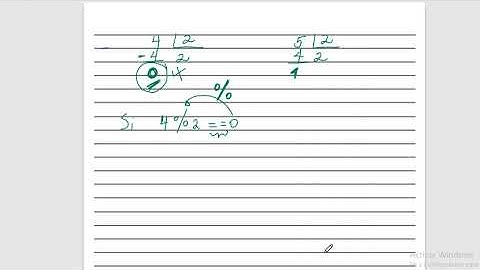 4 | 2
- 4 2
0 x
5 | 2
4 2
1
%
Si 4%2 == 0
Activar Windows